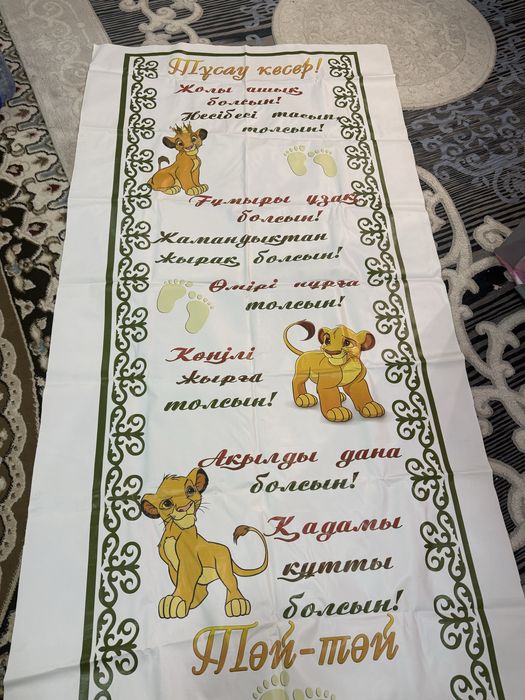 Тұсау кесер!
Жолы ашық
болсын!
Несібесі тасып
толсын!
Ғұмыры ұзақ
болсын!
Жамандықтан
жырақ болсын!
Өмірі нұрға
толсын!
Көңілі
жырға
толсын!
Ақылды дана
болсын!
Қадамы
құтты
болсын!
Тәй-тәй